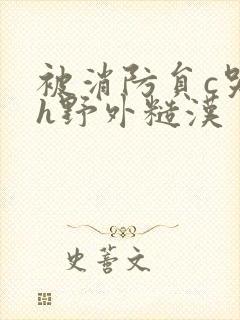 被消防负c哭
h野外糙漢
史萫文